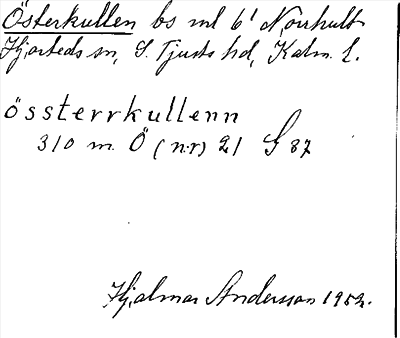 Österkullen bs ml 6' Norrhult
Hjorteds sn, S. Tjusts hd, Kalm. l.
össterrkullenn
310 m. Ö (nr) 21 G 87
Hjalmar Andersson 1952.